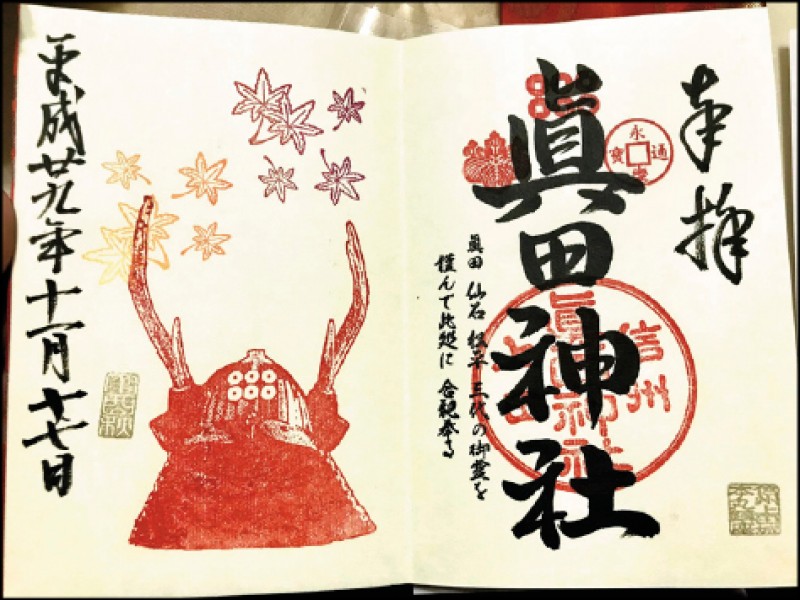 奉拝
眞田神社
永
通
寳
信州
上田
眞田神社
眞田 仙石 松平 三代の御霊を
謹んで此処に 合祀奉る
平成廿九年十一月十七日